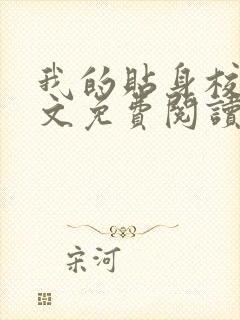 我的貼身校
文免費閱讀
宋河